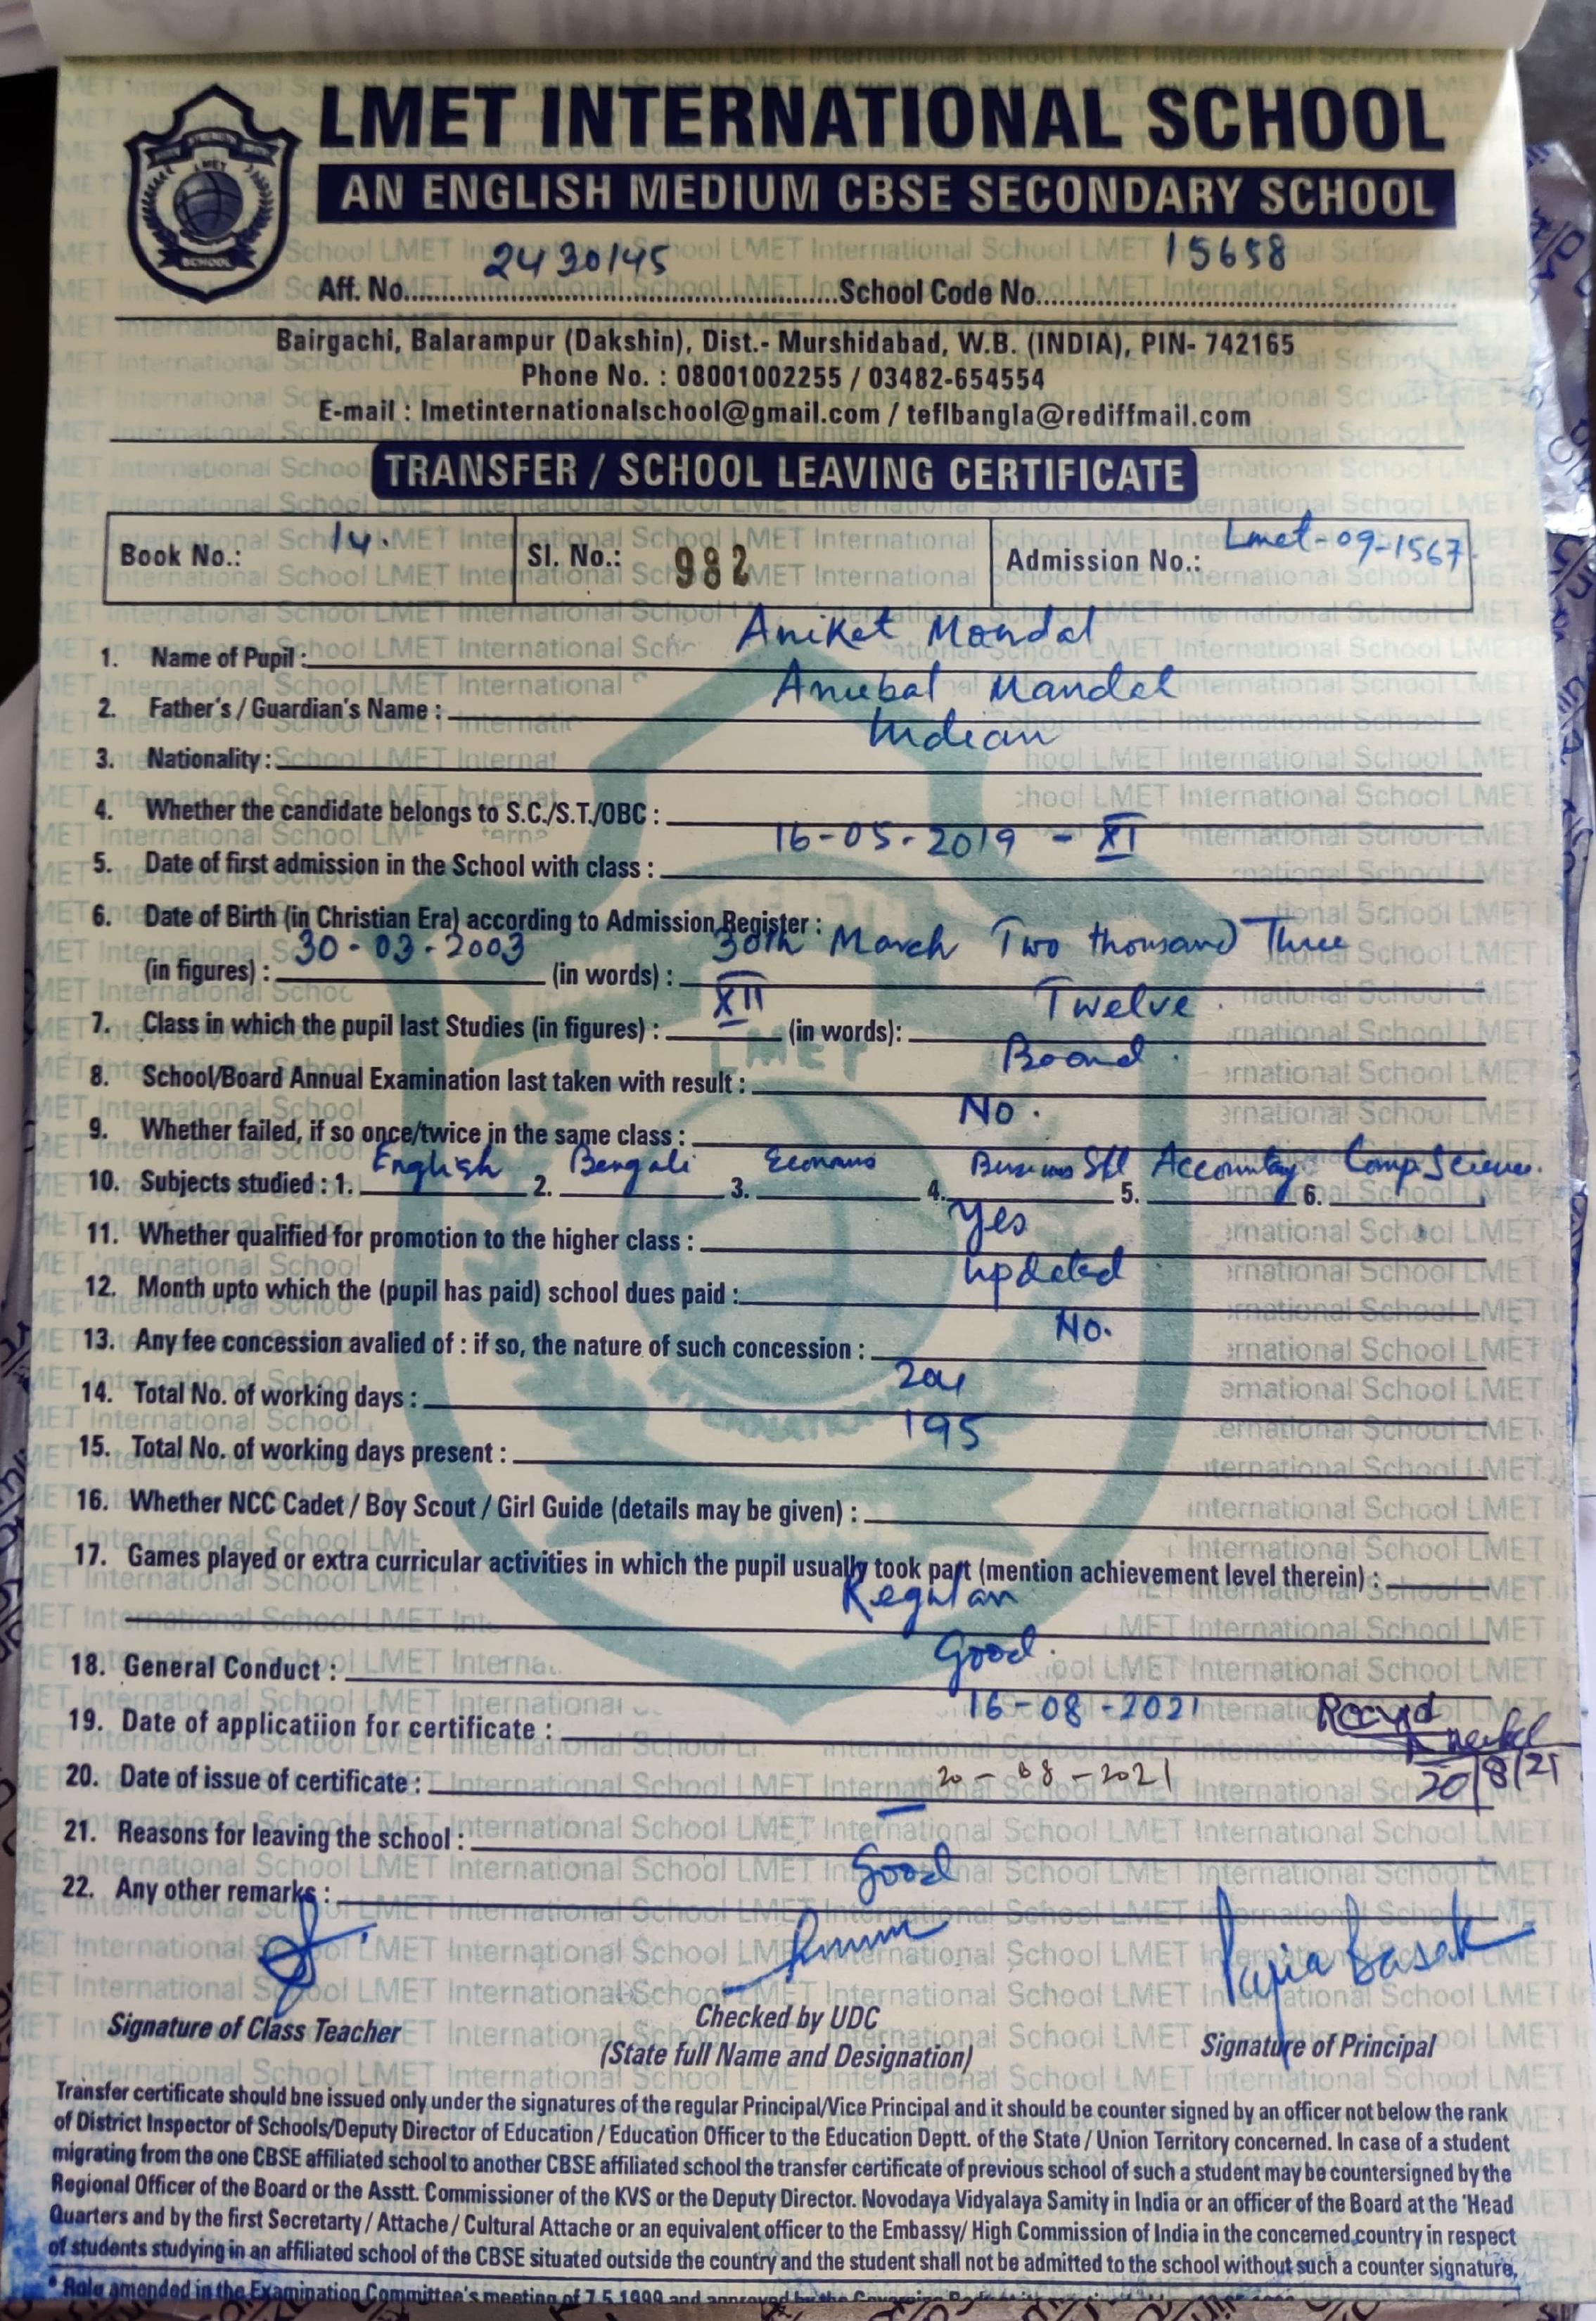 LMET INTERNATIONAL SCHOOL
AN ENGLISH MEDIUM CBSE SECONDARY SCHOOL
LMET
SCHOOL
Aff. No. 2430145 School Code No. 15658
Bairgachi, Balarampur (Dakshin), Dist.- Murshidabad, W.B. (INDIA), PIN- 742165
Phone No. : 08001002255 / 03482-654554
E-mail : lmetinternationalschool@gmail.com / teflbangla@rediffmail.com
TRANSFER / SCHOOL LEAVING CERTIFICATE
Book No.: 14. Sl. No.: 982 Admission No.: Lmet-09-1567
1. Name of Pupil : Aniket Mondal
2. Father's / Guardian's Name : Mandal
3. Nationality : Indian
4. Whether the candidate belongs to S.C./S.T./OBC :
5. Date of first admission in the School with class : 16-05-2019 - XI
6. Date of Birth (in Christian Era) according to Admission Register :
(in figures) : 30-03-2003 (in words) : 30th March Two thousand Three
7. Class in which the pupil last Studies (in figures) : XII (in words): Twelve.
8. School/Board Annual Examination last taken with result : Board.
9. Whether failed, if so once/twice in the same class : No.
10. Subjects studied : 1. English 2. Bengali 3. 4. 5. 6. Comp. Science.
11. Whether qualified for promotion to the higher class : Yes
12. Month upto which the (pupil has paid) school dues paid : updated
13. Any fee concession avalied of : if so, the nature of such concession : No.
14. Total No. of working days : 201
15. Total No. of working days present : 195
16. Whether NCC Cadet / Boy Scout / Girl Guide (details may be given) :
17. Games played or extra curricular activities in which the pupil usually took part (mention achievement level therein) :
Regular
18. General Conduct : Good.
19. Date of applicatiion for certificate : 16-08-2021
20. Date of issue of certificate : 20-08-2021
Recvd
20/8/21
21. Reasons for leaving the school : —
22. Any other remarks : Good
Signature of Class Teacher
Checked by UDC
(State full Name and Designation)
Signature of Principal
Transfer certificate should bne issued only under the signatures of the regular Principal/Vice Principal and it should be counter signed by an officer not below the rank
of District Inspector of Schools/Deputy Director of Education / Education Officer to the Education Deptt. of the State / Union Territory concerned. In case of a student
migrating from the one CBSE affiliated school to another CBSE affiliated school the transfer certificate of previous school of such a student may be countersigned by the
Regional Officer of the Board or the Asstt. Commissioner of the KVS or the Deputy Director. Novodaya Vidyalaya Samity in India or an officer of the Board at the 'Head
Quarters and by the first Secretarty / Attache / Cultural Attache or an equivalent officer to the Embassy/ High Commission of India in the concerned country in respect
of students studying in an affiliated school of the CBSE situated outside the country and the student shall not be admitted to the school without such a counter signature,
* Role amended in the Examination Committee's meeting of 7.5.1999 and approved by the